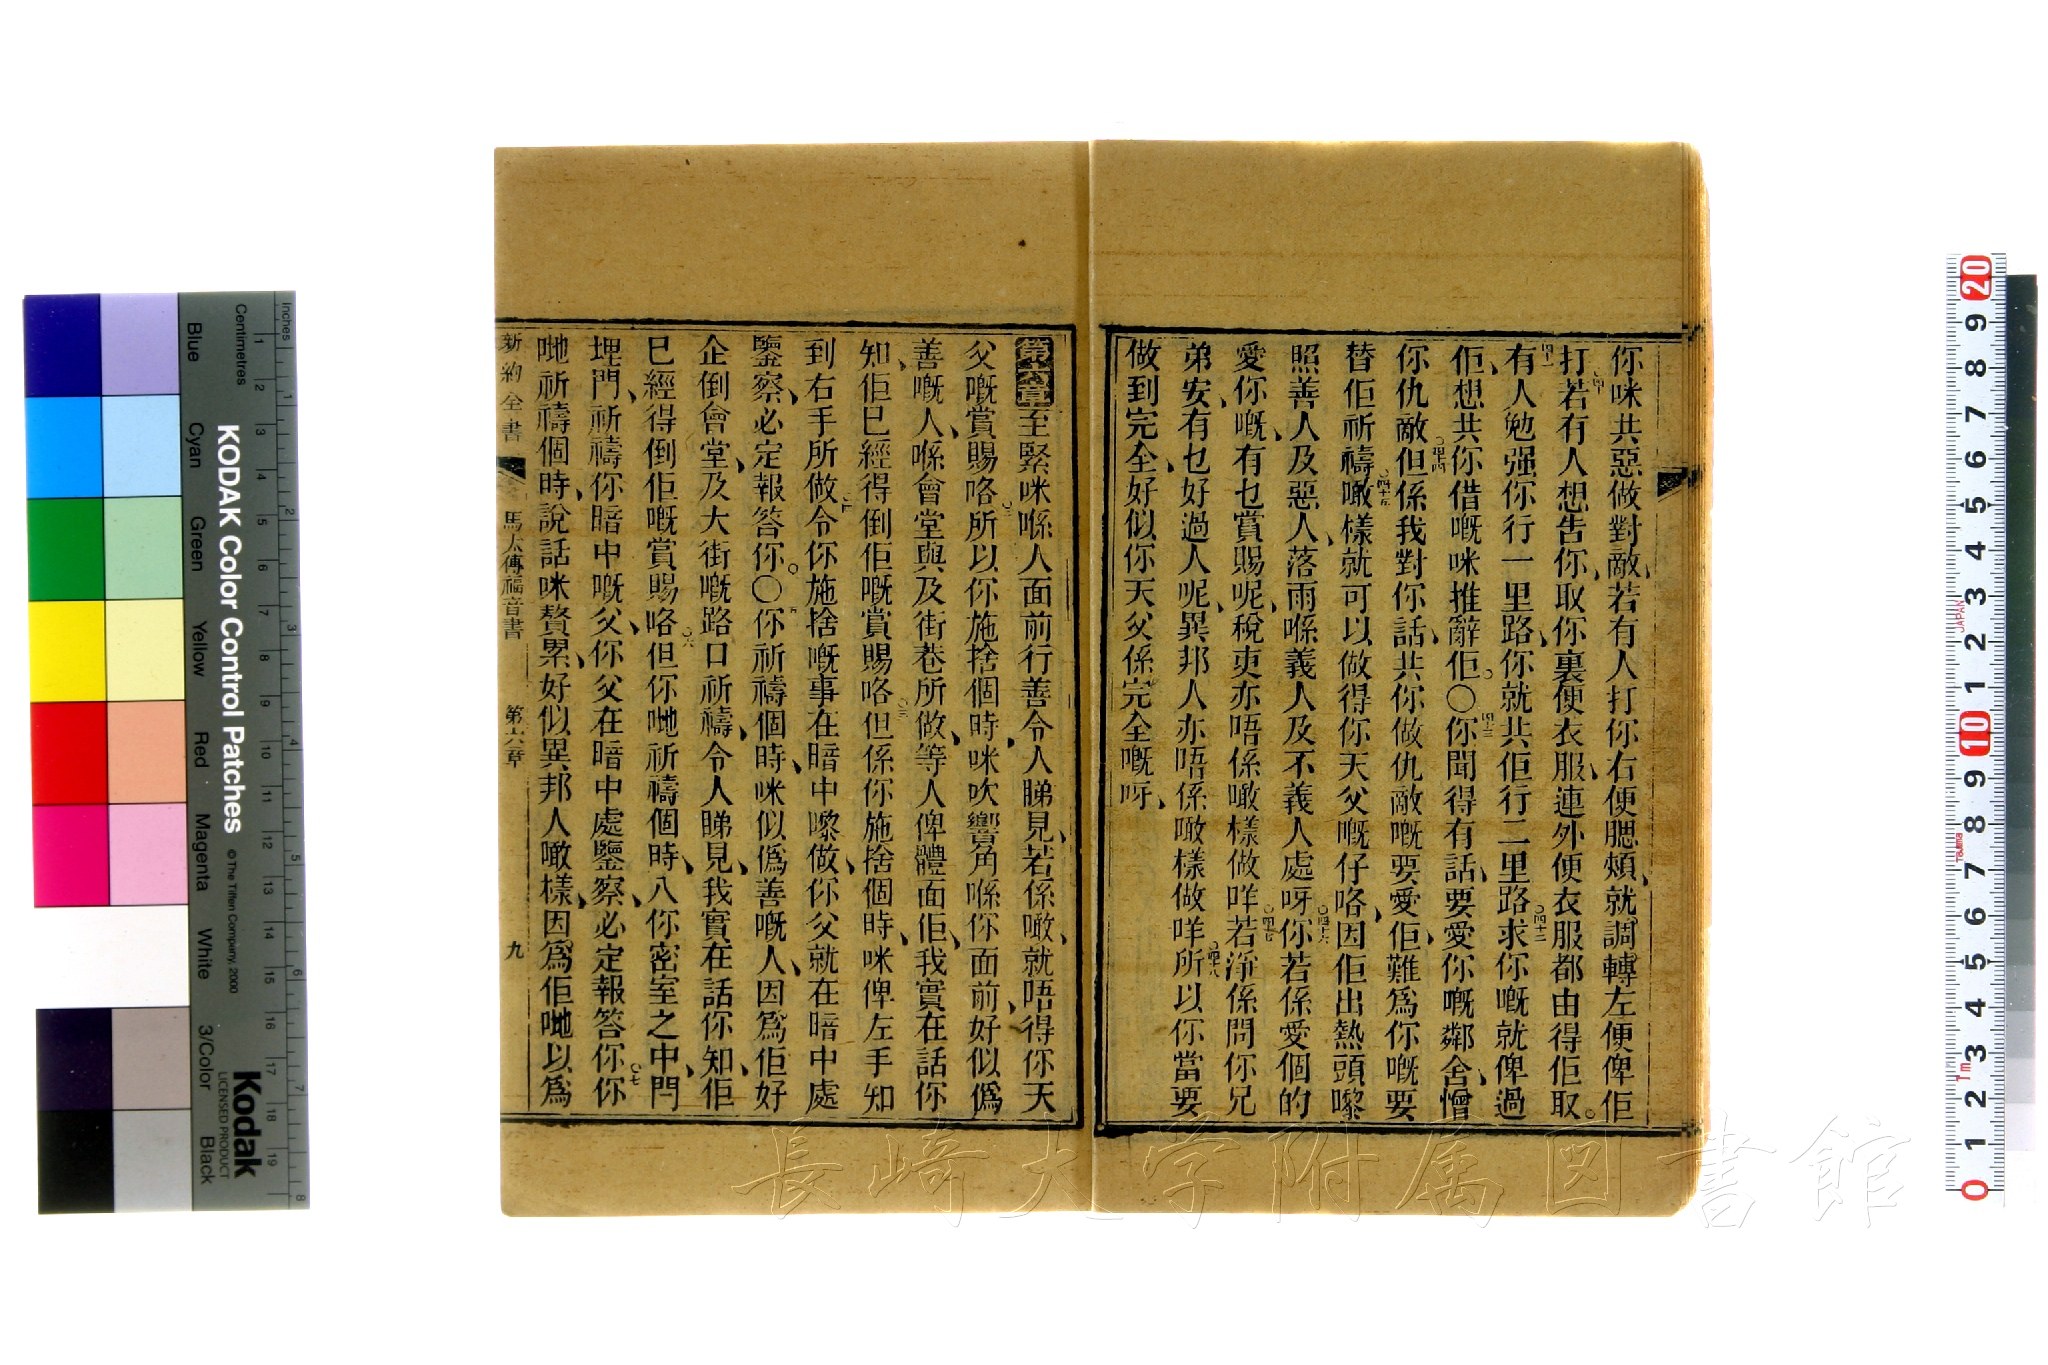 你咪共惡做對敵、若有人打你右便腮頰、就調轉左便俾佢
打、四十若有人想告你、取你裏便衣服、連外便衣服都由得佢取。
四一有人勉强你行一里路、你就共佢行二里路、四十二求你嘅就俾過
佢、想共你借嘅咪推辭佢。〇四十三你聞得有話、要愛你嘅鄰舍、憎
你仇敵、四十四但係我對你話、共你做仇敵嘅要愛佢、難爲你嘅要
替佢祈禱、四十五噉樣就可以做得你天父嘅仔咯、因佢出熱頭嚟
照善人及惡人、落雨喺義人及不義人處呀、四十六你若係愛個的
愛你嘅、有乜賞賜呢、稅吏亦唔係噉樣做咩、四十七若淨係問你兄
弟安、有乜好過人呢、異邦人亦唔係噉樣做咩、四十八所以你當要
做到完全、好似你天父係完全嘅呀、
第六章至緊咪喺人面前行善、令人睇見、若係噉、就唔得你天
父嘅賞賜咯、二所以你施捨個時、咪吹響角喺你面前、好似僞
善嘅人、喺會堂與及街巷所做、等人俾體面佢、我實在話你
知、佢已經得倒佢嘅賞賜咯、三但係你施捨個時、咪俾左手知
到右手所做、四令你施捨嘅事在暗中嚟做、你父就在暗中處
鑒察、必定報答你。〇五你祈禱個時、咪似僞善嘅人、因爲佢好
企倒會堂、及大街嘅路口祈禱、令人睇見、我實在話你知、佢
已經得倒佢嘅賞賜咯、六但你哋祈禱個時、入你密室之中、閂
埋門、祈禱你暗中嘅父、你父在暗中處鑒察、必定報答你、七你
哋祈禱個時、說話咪贅累、好似異邦人噉樣、因爲佢哋以爲
新約全書 馬太傳福音書 第六章 九
Inches
Centimetres
KODAK Color Control Patches
© The Tiffen Company, 2000
Blue Cyan Green Yellow Red Magenta White 3/Color Black
Kodak
LICENSED PRODUCT
長崎大学附属図書館
JAPAN